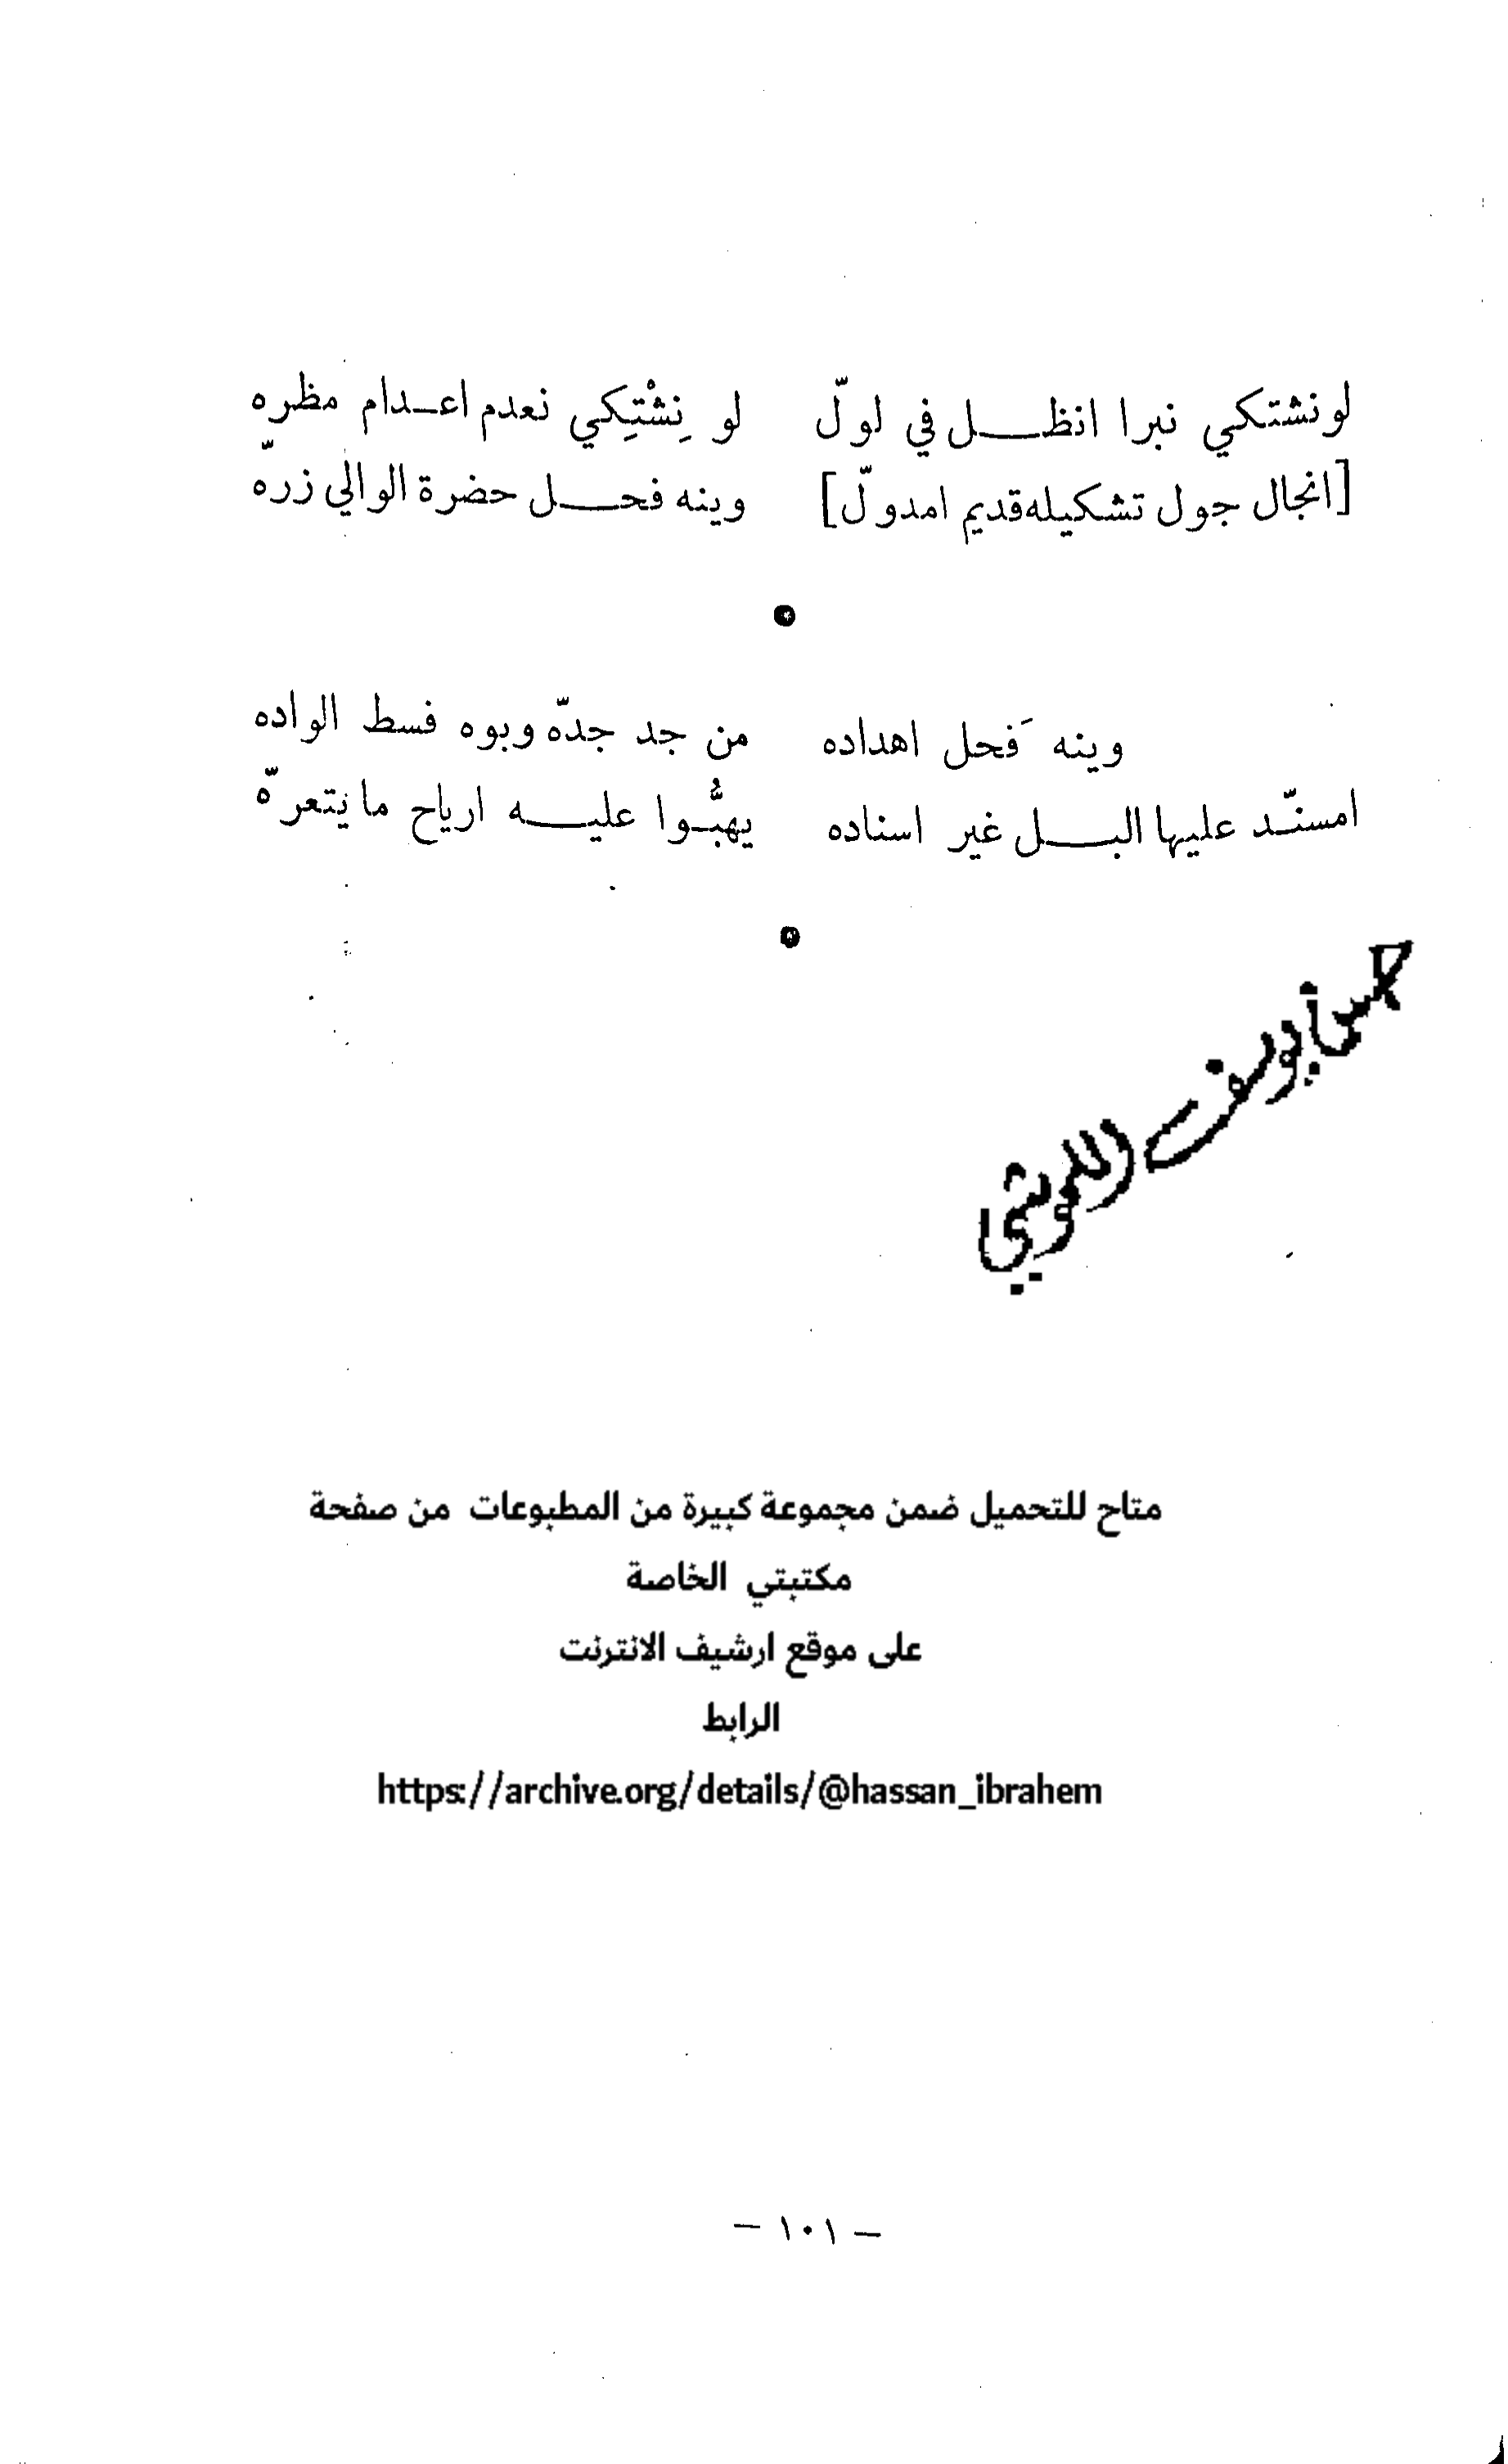 لو نشتكي نبرا انظل في لولّ لو نِشْتِكي نعدم اعدام مظره
[انجال جول تشكيله قديم امدولّ] وينه فحل حضرة الوالي زرّه
وينه فَحل اهداده من جد جدّه وبوه فسط الواده
امسنّد عليها البل غير اسناده يهبُّوا عليه ارياح ما يتعرّه
يوسف
متاح للتحميل ضمن مجموعة كبيرة من المطبوعات من صفحة
مكتبتي الخاصة
على موقع ارشيف الانترنت
الرابط
https://archive.org/details/@hassan_ibrahem
— ١٠١ —